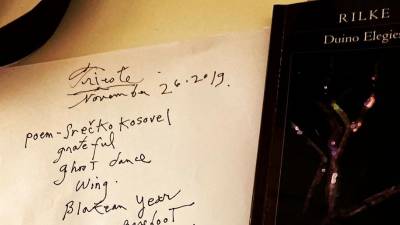 Trieste
November 26.2019.
poem-Srečko Kosovel
grateful
ghost dance
wing.
Blakean Year
Barefoot
RILKE
Duino Elegies